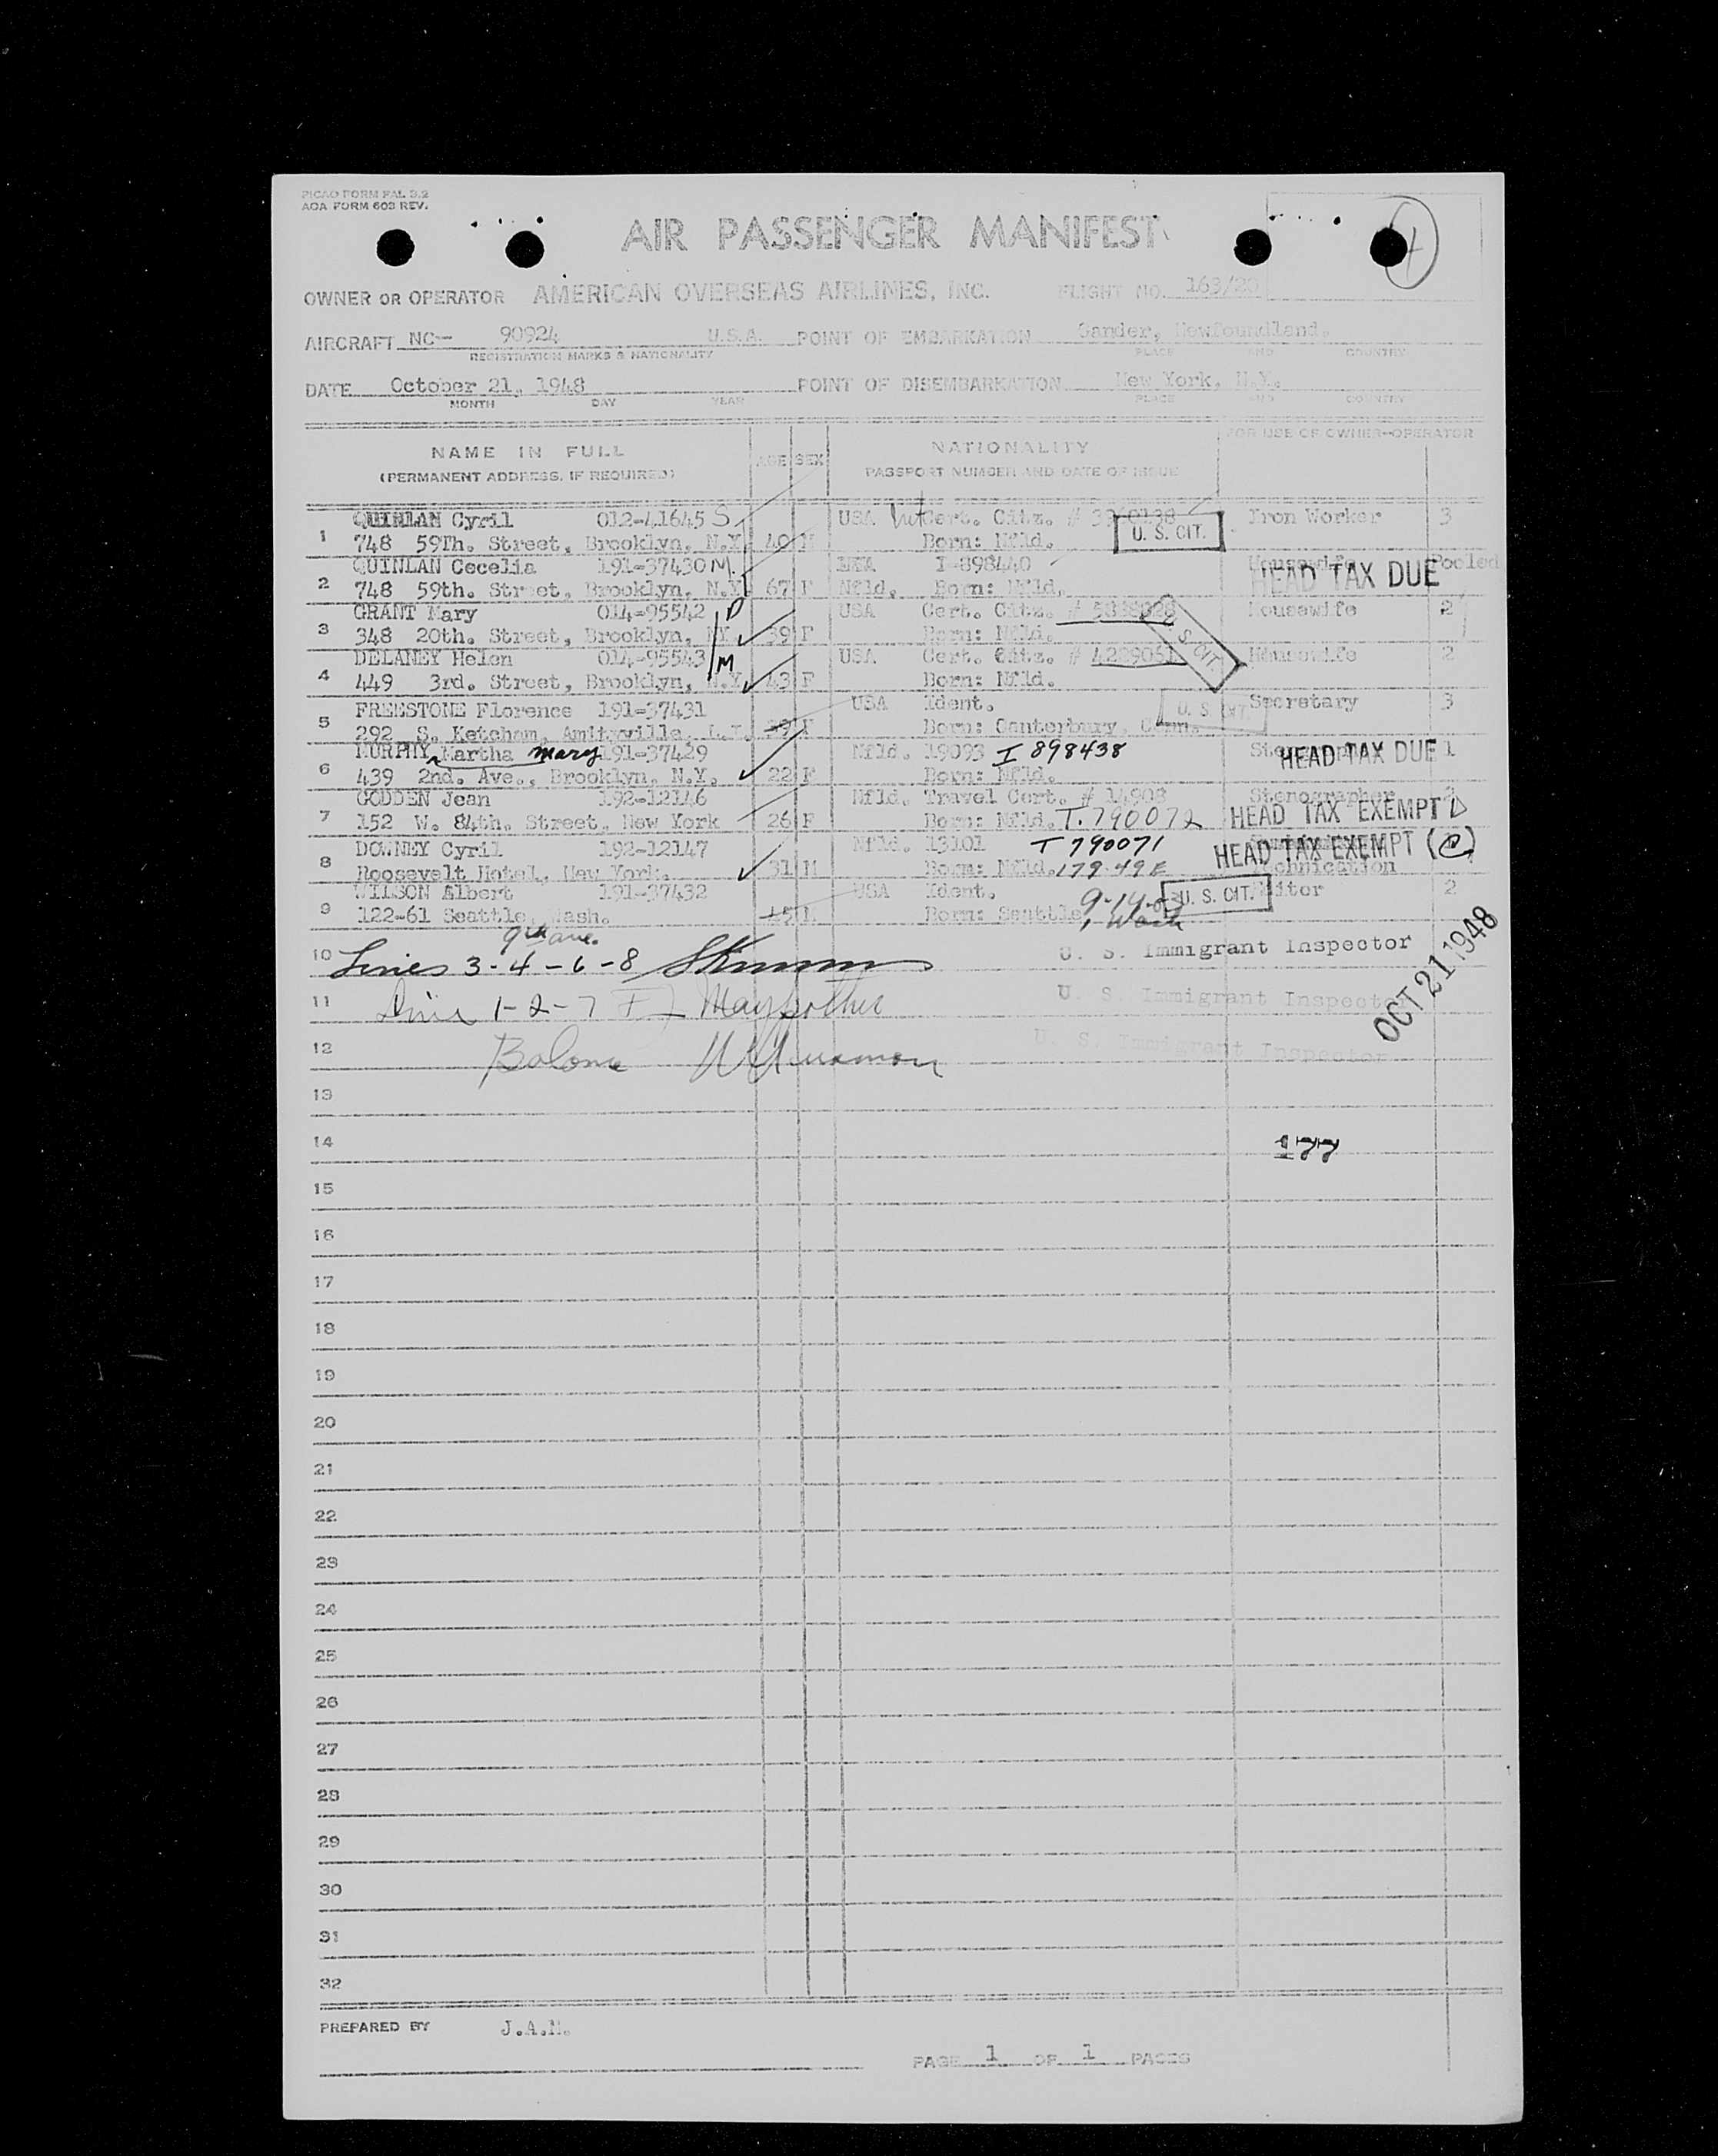 PICAO FORM FAL 3.2
AOA FORM 603 REV.
AIR PASSENGER MANIFEST
OWNER OR OPERATOR AMERICAN OVERSEAS AIRLINES, INC. FLIGHT NO. 163/20
AIRCRAFT NC- 90924 U.S.A. POINT OF EMBARKATION Gander, Newfoundland.
REGISTRATION MARKS & NATIONALITY PLACE AND COUNTRY
DATE October 21, 1948 POINT OF DISEMBARKATION New York, N.Y.
MONTH DAY YEAR PLACE AND COUNTRY
NAME IN FULL AGE SEX NATIONALITY FOR USE OF OWNER-OPERATOR
(PERMANENT ADDRESS, IF REQUIRED) PASSPORT NUMBER AND DATE OF ISSUE
QUINLAN Cyril 012-41645 S USA Cert. Citz. # Iron Worker 3
1 748 59Th. Street, Brooklyn, N.Y. 40 M Born: Nfld. U. S. CIT.
QUINLAN Cecelia 191-37430 M. I-898440 Housewife Pooled
2 748 59th. Street, Brooklyn, N.Y. 67 F Nfld. Born: Nfld. HEAD TAX DUE
GRANT Mary 014-95542 D USA Cert. Citz. # Housewife 2
3 348 20th. Street, Brooklyn, NY. 39 F Born: Nfld. U. S. CIT.
DELANEY Helen 014-95543 M USA Cert. Citz. # Housewife 2
4 449 3rd. Street, Brooklyn, N.Y. 43 F Born: Nfld.
FREESTONE Florence 191-37431 USA Ident. U. S. CIT. Secretary 3
5 292 S. Ketcham, Amityville, L.I. F Born: Canterbury, Conn.
MURPHY Martha Mary 191-37429 Nfld. 19093 I 898438 HEAD TAX DUE 1
6 439 2nd. Ave., Brooklyn, N.Y. 22 F Born: Nfld.
GODDEN Jean 192-12146 Nfld. Travel Cert. # 14908 Stenographer
7 152 W. 84th. Street, New York 26 F Born: Nfld. T.790072 HEAD TAX EXEMPT
DOWNEY Cyril 192-12147 Nfld. 13101 T 790071 HEAD TAX EXEMPT
8 Roosevelt Hotel, New York. 31 M Born: Nfld.
WILSON Albert 191-37432 USA Ident. U. S. CIT. 2
9 122-61 Seattle, Wash. Born: Seattle, Wash
9th ave.
10 Lines 3-4-6-8 U. S. Immigrant Inspector
11 1-2-7 U. S. Immigrant Inspector
12 U. S. Immigrant Inspector
OCT 21 1948
13
14 177
15
16
17
18
19
20
21
22
23
24
25
26
27
28
29
30
31
32
PREPARED BY
PAGE 1 OF 1 PAGES